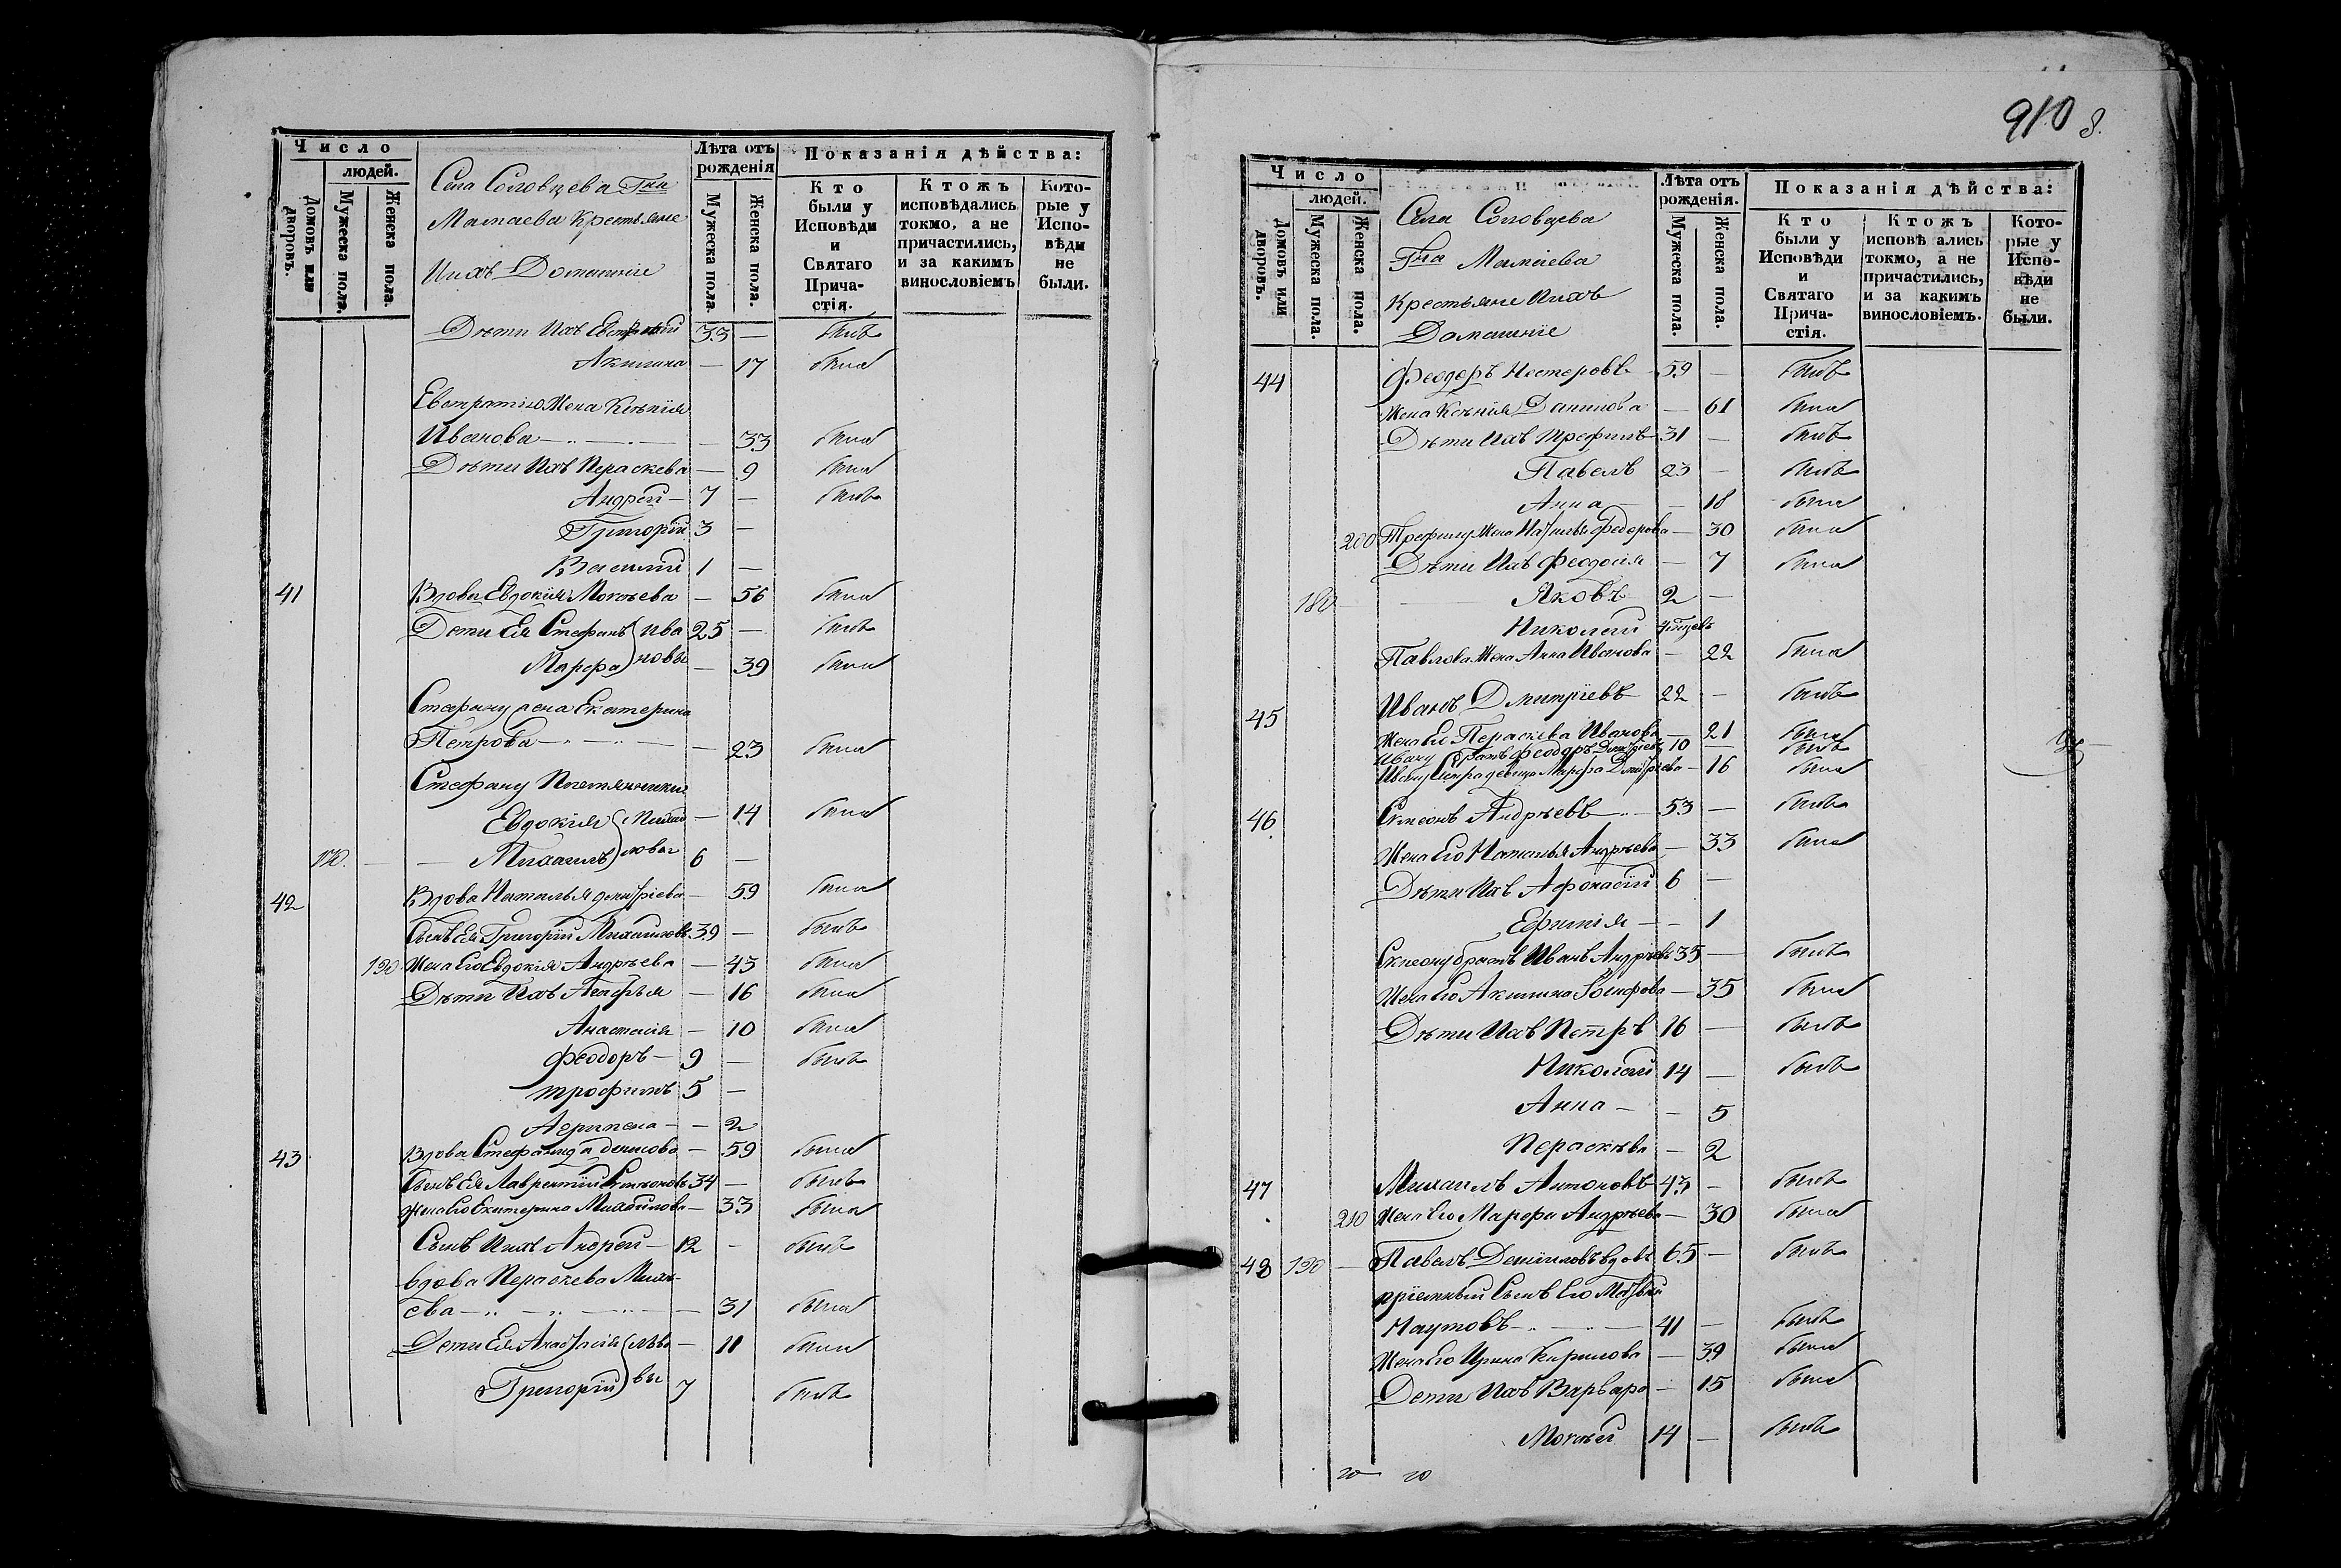 Число
людей.
Домовъ или дворовъ.
Мужеска пола.
Женска пола.
Села Соловцева Гна
Мамаева Крестьяне
Ихъ Домашніе
Лѣта отъ рожденія
Мужеска пола.
Женска пола.
Показанія дѣйства:
Кто были у Исповѣди и Святаго Причастія.
Ктожъ исповѣдались токмо, а не причастились, и за какимъ винословіемъ
Которые у Исповѣди не были.
Дѣти Ихъ Евстратій 33 — былъ
Акилина — 17 была
Евстратію Жена Ксѣнія
Иванова — 33 была
Дѣти Ихъ Пераскева — 9 была
Андрей — 7 — былъ
Григорій 3 —
Василій 1 —
41 Вдова Евдокія Моисѣева — 56 была
Дети Ея Стефанъ Ива 25 — былъ
Марфа новы — 39 была
Стефану жена Екатерина
Петрова — 23 была
Стефану Племянники
Евдокія Михай — 14 была
170 — Михаилъ ловы 6 —
42 Вдова Наталья Дмитріева — 59 была
Сынъ Ея Григорій Михаиловъ 39 — былъ
190 Жена Его Евдокія Андрѣева — 43 была
Дѣти Ихъ Агафья — 16 была
Анастасія — 10 была
Феодоръ — 9 — былъ
Трофимъ 5 —
Агрипена — 2
43 Вдова Стефанида Денисова — 59 была
Сынъ Ея Лаврентій Симеоновъ 34 — былъ
Жена Его Екатерина Михаилова — 33 была
Сынъ Ихъ Андрей — 12 — былъ
Вдова Пераскева Миха-
ева — 31 была
Дети Ея Анастасія — 11 была
Григорій вы 7 былъ
910 8.
Число
людей.
Домовъ или дворовъ.
Мужеска пола.
Женска пола.
Села Соловцева
Гна Мамаева
Крестьяне Ихъ
Домашніе
Лѣта отъ рожденія.
Мужеска пола.
Женска пола.
Показанія дѣйства:
Кто были у Исповѣди и Святаго Причастія.
Ктожъ исповѣ ались токмо, а не причастились, и за какимъ винословіемъ.
Которые у Исповѣди не были.
44 Феодоръ Нестеровъ 59 — былъ
Жена Ксѣнія Данилова — 61 была
Дѣти Ихъ Трофимъ 31 — былъ
Павелъ 23 — былъ
Анна — 18 была
200 Трофиму Жена Наталья Федорова — 30 была
Дѣти Ихъ Феодосія — 7 была
180 — Яковъ 2 —
Николай
Павлова Жена Анна Иванова — 22 была
45 Иванъ Дмитріевъ 22 — былъ
Жена Ея Пераскева Иванова — 21 была
Ивану братъ Феодоръ Дмитріевъ 10 — былъ
Ивану Сестра девица Марфа Дмитріева — 16 была
46 Симеонъ Андрѣевъ 53 — былъ
Жена Его Наталья Андрѣева — 33 была
Дѣти Ихъ Афонасій 6 —
Ефимія — 1
Симеону братъ Иванъ Андрѣевъ 35 — былъ
Жена Его Акилина — 35 была
Дѣти Ихъ Петръ 16 — былъ
Николай 14 — былъ
Анна — 5
Пераскѣва — 2
47 Михаилъ Антоновъ 43 — былъ
210 Жена Его Марфа Андрѣева — 30 была
48 190 — Павелъ Даниловъ вдовъ 65 — былъ
пріемный Сынъ Его Матвѣй
Наумовъ 41 — былъ
Жена Его Ирина Кирилова — 39 была
Дети Ихъ Варвара — 15 была
Моисей 14 — былъ
20 20